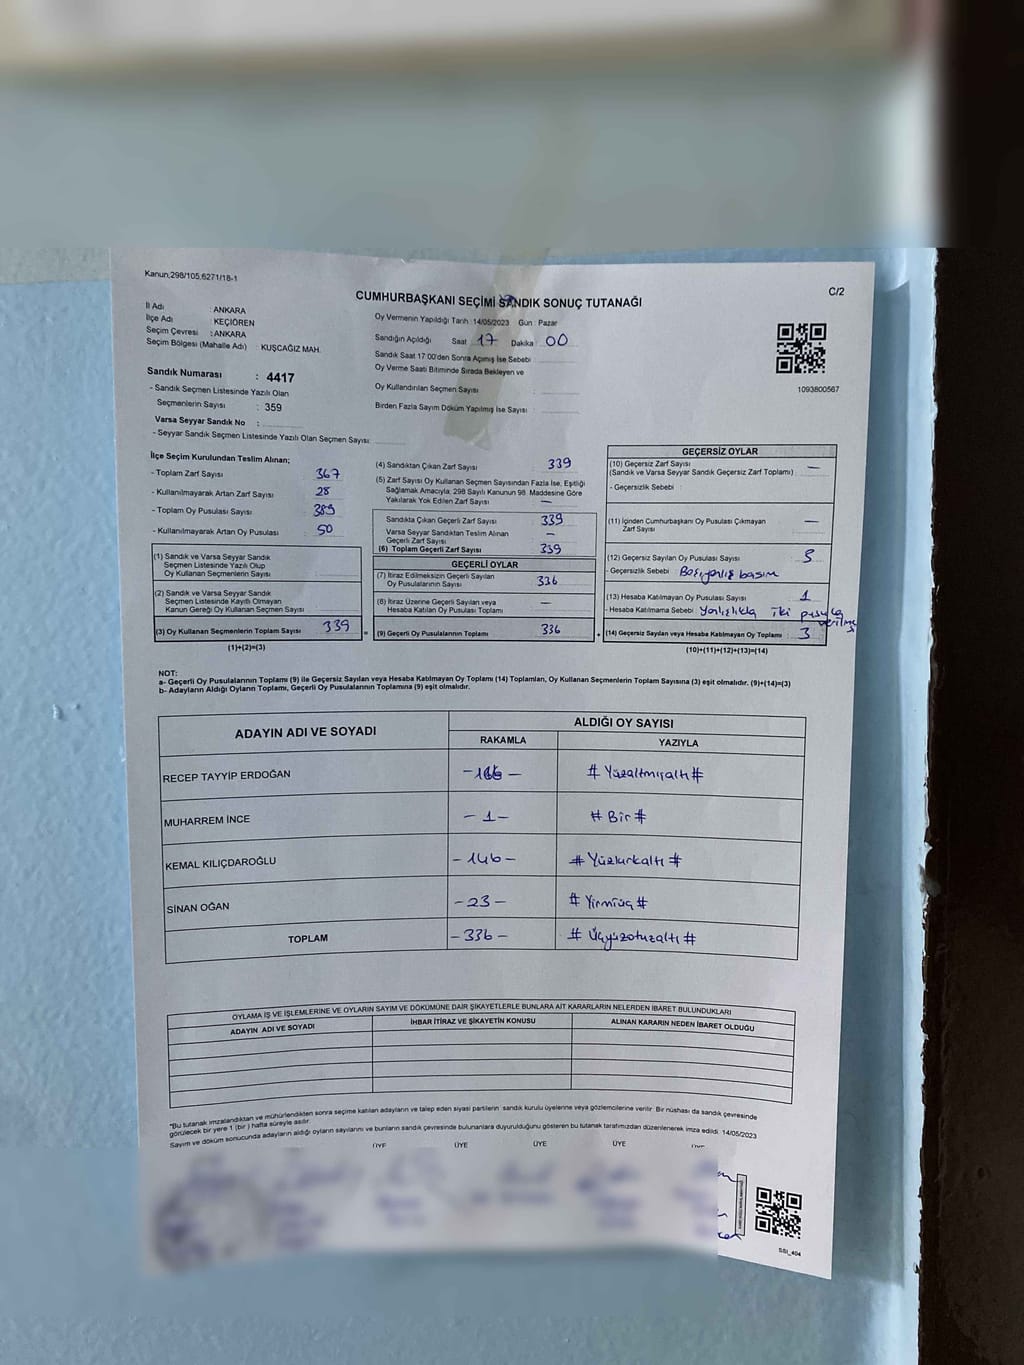 Kanun,298/105,6271/18-1
CUMHURBAŞKANI SEÇİMİ SANDIK SONUÇ TUTANAĞI
C/2
İl Adı : ANKARA
İlçe Adı : KEÇİÖREN
Seçim Çevresi : ANKARA
Seçim Bölgesi (Mahalle Adı) : KUŞCAĞIZ MAH.
Oy Vermenin Yapıldığı Tarih :14/05/2023 Gün : Pazar
Sandığın Açıldığı Saat 17 Dakika 00
Sandık Saat 17:00'den Sonra Açımış İse Sebebi :
Oy Verme Saati Bitiminde Sırada Bekleyen ve
Oy Kullandırılan Seçmen Sayısı :
Birden Fazla Sayım Döküm Yapılmış İse Sayısı :
1093800567
Sandık Numarası : 4417
- Sandık Seçmen Listesinde Yazılı Olan
Seçmenlerin Sayısı : 359
Varsa Seyyar Sandık No :
- Seyyar Sandık Seçmen Listesinde Yazılı Olan Seçmen Sayısı:
İlçe Seçim Kurulundan Teslim Alınan;
- Toplam Zarf Sayısı 367
- Kullanılmayarak Artan Zarf Sayısı 28
- Toplam Oy Pusulası Sayısı 389
- Kullanılmayarak Artan Oy Pusulası 50
(1) Sandık ve Varsa Seyyar Sandık
Seçmen Listesinde Yazılı Olup
Oy Kullanan Seçmenlerin Sayısı
(2) Sandık ve Varsa Seyyar Sandık
Seçmen Listesinde Kayıtlı Olmayan
Kanun Gereği Oy Kullanan Seçmen Sayısı
(3) Oy Kullanan Seçmenlerin Toplam Sayısı 339
(1)+(2)=(3)
(4) Sandıktan Çıkan Zarf Sayısı 339
(5) Zarf Sayısı Oy Kullanan Seçmen Sayısından Fazla İse, Eşitliği
Sağlamak Amacıyla, 298 Sayılı Kanunun 98. Maddesine Göre
Yakılarak Yok Edilen Zarf Sayısı —
Sandıkta Çıkan Geçerli Zarf Sayısı 339
Varsa Seyyar Sandıktan Teslim Alınan
Geçerli Zarf Sayısı —
(6) Toplam Geçerli Zarf Sayısı 339
GEÇERLİ OYLAR
(7) İtiraz Edilmeksizin Geçerli Sayılan
Oy Pusulalarının Sayısı 336
(8) İtiraz Üzerine Geçerli Sayılan veya
Hesaba Katılan Oy Pusulası Toplamı —
= (9) Geçerli Oy Pusulalarının Toplamı 336
GEÇERSİZ OYLAR
(10) Geçersiz Zarf Sayısı
(Sandık ve Varsa Seyyar Sandık Geçersiz Zarf Toplamı) —
- Geçersizlik Sebebi :
(11) İçinden Cumhurbaşkanı Oy Pusulası Çıkmayan
Zarf Sayısı —
(12) Geçersiz Sayılan Oy Pusulası Sayısı
- Geçersizlik Sebebi
(13) Hesaba Katılmayan Oy Pusulası Sayısı 1
- Hesaba Katılmama Sebebi : Yanlışlıkla iki pusula verilmiş
+ (14) Geçersiz Sayılan veya Hesaba Katılmayan Oy Toplamı 3
(10)+(11)+(12)+(13)=(14)
NOT:
a- Geçerli Oy Pusulalarının Toplamı (9) ile Geçersiz Sayılan veya Hesaba Katılmayan Oy Toplamı (14) Toplamları, Oy Kullanan Seçmenlerin Toplam Sayısına (3) eşit olmalıdır. (9)+(14)=(3)
b- Adayların Aldığı Oyların Toplamı, Geçerli Oy Pusulalarının Toplamına (9) eşit olmalıdır.
ADAYIN ADI VE SOYADI
ALDIĞI OY SAYISI
RAKAMLA YAZIYLA
RECEP TAYYİP ERDOĞAN -166- # Yüzaltmışaltı #
MUHARREM İNCE -1- # Bir #
KEMAL KILIÇDAROĞLU -146- # Yüzkırkaltı #
SİNAN OĞAN -23- # Yirmiüç #
TOPLAM -336- # Üçyüzotuzaltı #
OYLAMA İŞ VE İŞLEMLERİNE VE OYLARIN SAYIM VE DÖKÜMÜNE DAİR ŞİKAYETLERLE BUNLARA AİT KARARLARIN NELERDEN İBARET BULUNDUKLARI
ADAYIN ADI VE SOYADI İHBAR İTİRAZ VE ŞİKAYETİN KONUSU ALINAN KARARIN NEDEN İBARET OLDUĞU
*Bu tutanak imzalandıktan ve mühürlendikten sonra seçime katılan adayların ve talep eden siyasi partilerin sandık kurulu üyelerine veya gözlemcilerine verilir. Bir nüshası da sandık çevresinde
görülecek bir yere 1 (bir) hafta süreyle asılır.
Sayım ve döküm sonucunda adayların aldığı oyların sayılarını ve bunların sandık çevresinde bulunanlara duyurulduğunu gösteren bu tutanak tarafımızdan düzenlenerek imza edildi. 14/05/2023
ÜYE ÜYE ÜYE ÜYE ÜYE
SSI_404